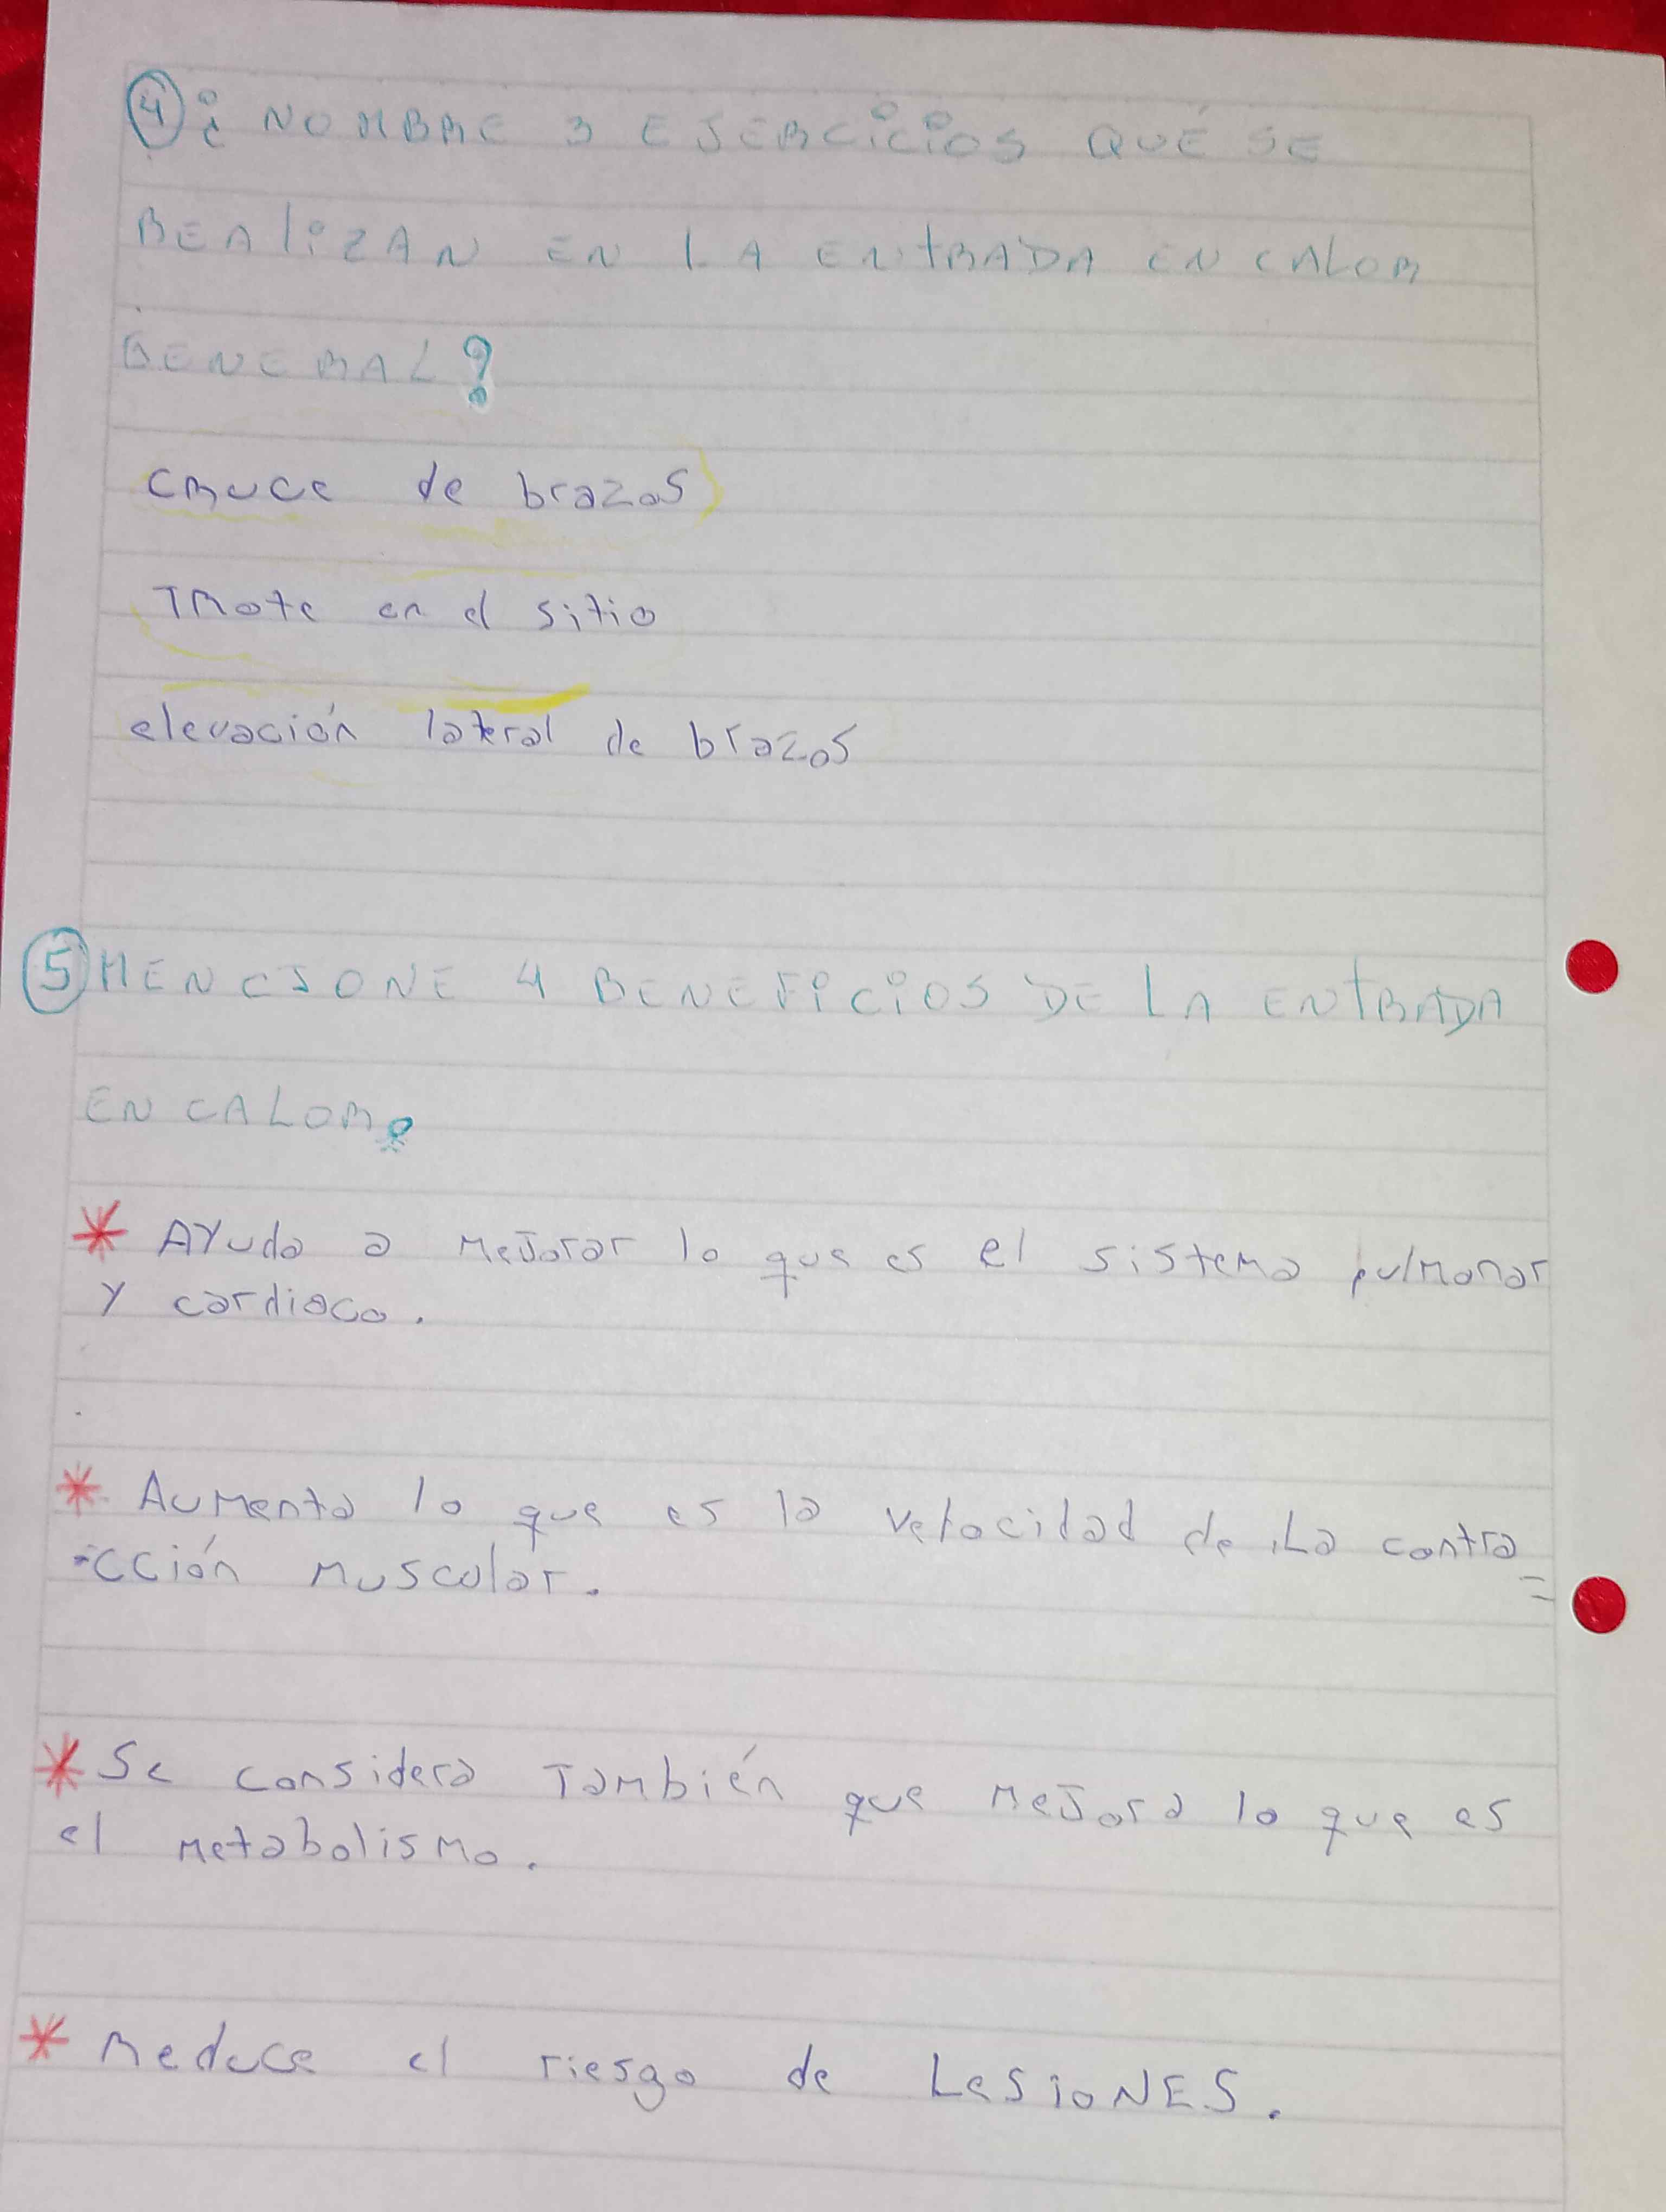 ④ ¿ NOMBRE 3 EJERCICIOS QUÉ SE
REALIZAN EN LA ENTRADA EN CALOR
GENERAL?
CRUCE de brazos
TRote en el sitio
elevación lateral de brazos
⑤ MENCIONE 4 BENEFICIOS DE LA ENTRADA
EN CALOR.
* AYuda a MeJorar lo que es el sistema pulmonar
Y cardiaco.
* AuMenta lo que es la velocidad de La contra=
-cción Muscular.
* Se considera También que MeJora lo que es
el Metabolismo.
* Reduce el riesgo de LesioNES.